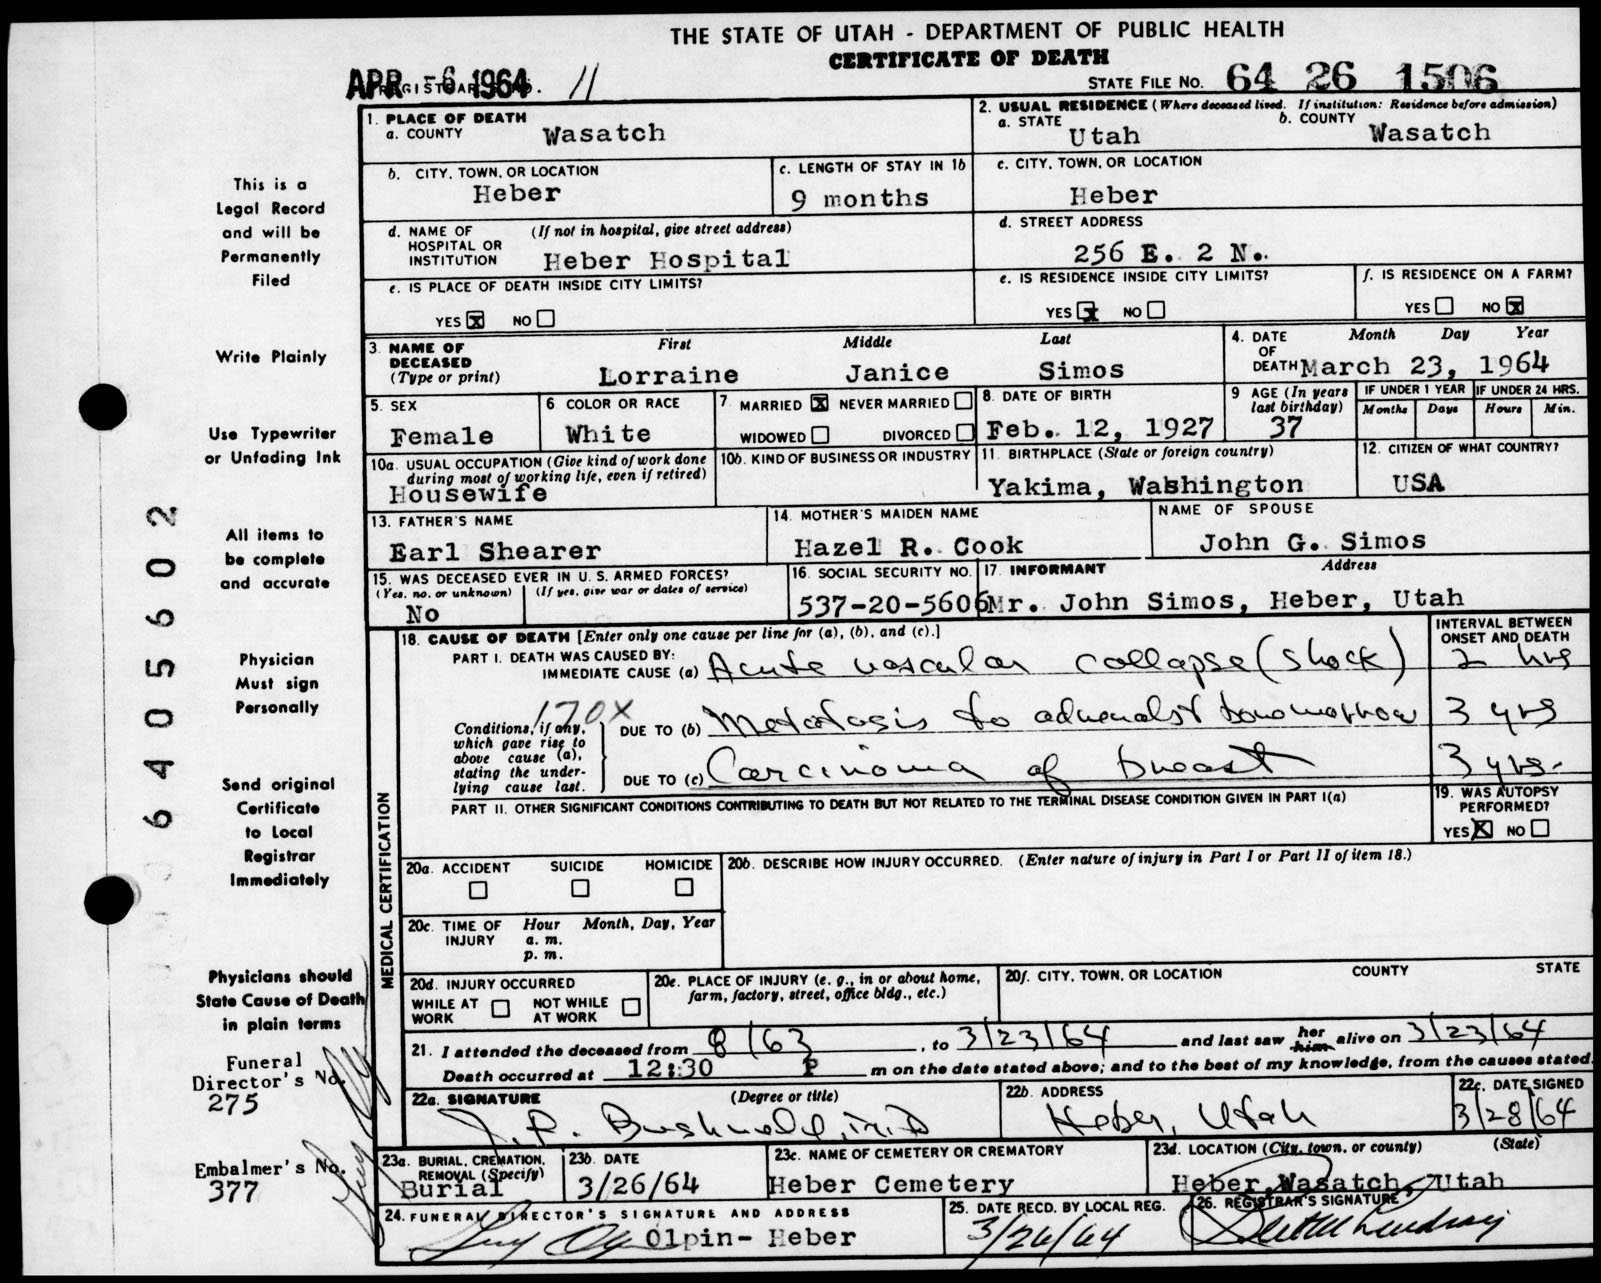 THE STATE OF UTAH - DEPARTMENT OF PUBLIC HEALTH
CERTIFICATE OF DEATH
APR -6 1964 REGISTRAR'S NO. 11 STATE FILE NO. 64 26 1506
1. PLACE OF DEATH
a. COUNTY Wasatch
2. USUAL RESIDENCE (Where deceased lived. If institution: Residence before admission)
a. STATE Utah b. COUNTY Wasatch
b. CITY, TOWN, OR LOCATION Heber
c. LENGTH OF STAY IN 1b 9 months
c. CITY, TOWN, OR LOCATION Heber
d. NAME OF HOSPITAL OR INSTITUTION (If not in hospital, give street address) Heber Hospital
d. STREET ADDRESS 256 E. 2 N.
e. IS PLACE OF DEATH INSIDE CITY LIMITS?
YES X NO
e. IS RESIDENCE INSIDE CITY LIMITS?
YES X NO
f. IS RESIDENCE ON A FARM?
YES NO X
3. NAME OF DECEASED (Type or print) First Middle Last
Lorraine Janice Simos
4. DATE OF DEATH Month Day Year
March 23, 1964
5. SEX Female
6 COLOR OR RACE White
7 MARRIED X NEVER MARRIED
WIDOWED DIVORCED
8. DATE OF BIRTH Feb. 12, 1927
9 AGE (In years last birthday) 37
IF UNDER 1 YEAR Months Days
IF UNDER 24 HRS. Hours Min.
10a. USUAL OCCUPATION (Give kind of work done during most of working life, even if retired)
Housewife
10b. KIND OF BUSINESS OR INDUSTRY
11. BIRTHPLACE (State or foreign country)
Yakima, Washington
12. CITIZEN OF WHAT COUNTRY?
USA
13. FATHER'S NAME
Earl Shearer
14. MOTHER'S MAIDEN NAME
Hazel R. Cook
NAME OF SPOUSE
John G. Simos
15. WAS DECEASED EVER IN U. S. ARMED FORCES?
(Yes, no, or unknown) (If yes, give war or dates of service)
No
16. SOCIAL SECURITY NO.
537-20-5606
17. INFORMANT Address
Mr. John Simos, Heber, Utah
MEDICAL CERTIFICATION
18. CAUSE OF DEATH [Enter only one cause per line for (a), (b), and (c).]
INTERVAL BETWEEN ONSET AND DEATH
PART I. DEATH WAS CAUSED BY:
IMMEDIATE CAUSE (a) Acute vascular collapse (shock) 2 hrs
170X
Conditions, if any, which gave rise to above cause (a), stating the underlying cause last.
DUE TO (b) Metastasis to adrenals & bone marrow 3 yrs
DUE TO (c) Carcinoma of breast 3 yrs.
PART II. OTHER SIGNIFICANT CONDITIONS CONTRIBUTING TO DEATH BUT NOT RELATED TO THE TERMINAL DISEASE CONDITION GIVEN IN PART I(a)
19. WAS AUTOPSY PERFORMED?
YES X NO
20a. ACCIDENT SUICIDE HOMICIDE
20b. DESCRIBE HOW INJURY OCCURRED. (Enter nature of injury in Part I or Part II of item 18.)
20c. TIME OF INJURY Hour Month, Day, Year
a. m.
p. m.
20d. INJURY OCCURRED
WHILE AT WORK NOT WHILE AT WORK
20e. PLACE OF INJURY (e. g., in or about home, farm, factory, street, office bldg., etc.)
20f. CITY, TOWN, OR LOCATION COUNTY STATE
21. I attended the deceased from 8/63, to 3/23/64 and last saw her him alive on 3/23/64
Death occurred at 12:30 P m on the date stated above; and to the best of my knowledge, from the causes stated.
22a. SIGNATURE (Degree or title)
M.D.
22b. ADDRESS
Heber, Utah
22c. DATE SIGNED
3/28/64
23a. BURIAL, CREMATION, REMOVAL (Specify)
Burial
23b. DATE
3/26/64
23c. NAME OF CEMETERY OR CREMATORY
Heber Cemetery
23d. LOCATION (City, town, or county) (State)
Heber, Wasatch, Utah
24. FUNERAL DIRECTOR'S SIGNATURE AND ADDRESS
Olpin- Heber
25. DATE RECD. BY LOCAL REG.
3/26/64
26. REGISTRAR'S SIGNATURE
This is a
Legal Record
and will be
Permanently
Filed
Write Plainly
Use Typewriter
or Unfading Ink
All items to
be complete
and accurate
Physician
Must sign
Personally
Send original
Certificate
to Local
Registrar
Immediately
Physicians should
State Cause of Death
in plain terms
Funeral
Director's No.
275
Embalmer's No.
377
6405602